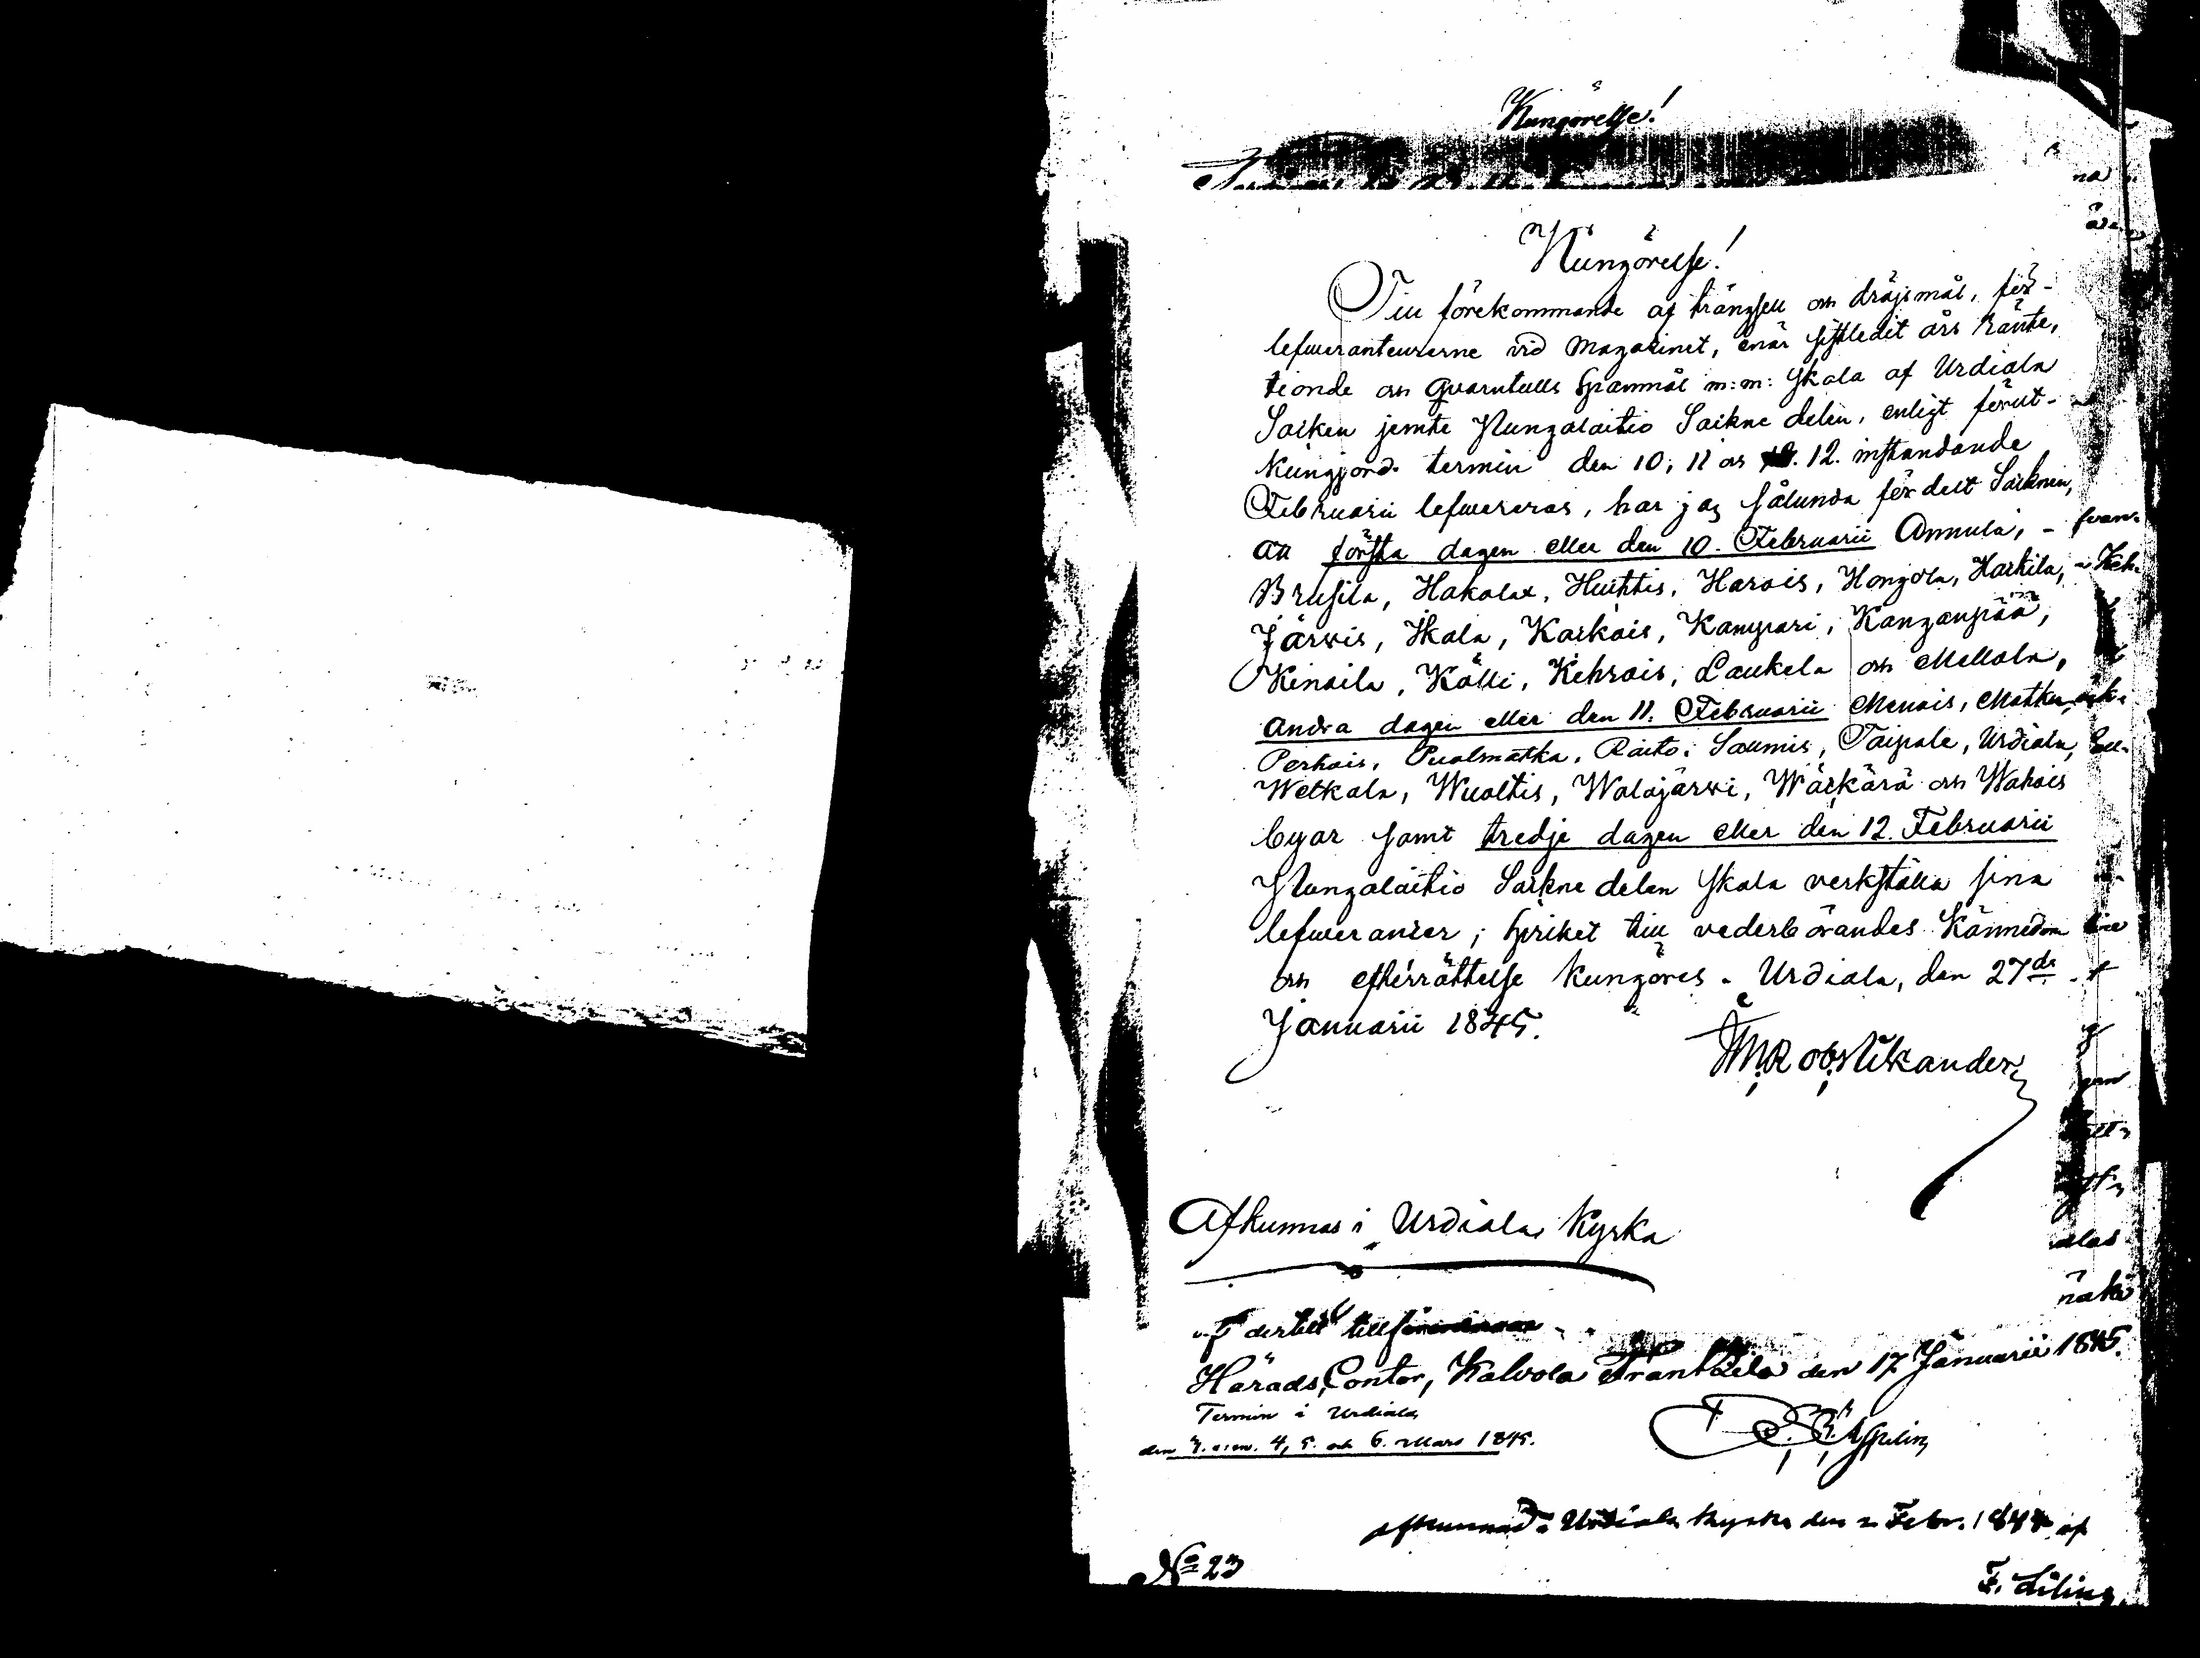 Kungörelse!
Kungörelse!
Till förekommande af trängsell och dräjsmål, för
lefweranteurerne vid Magazinet, enär sistledit års Ränte,
tionde och Qvarntulls Spannmål m:m: skola af Urdiala
Sockn jemte Nungalaitio Sockne delen, enligt förut-
kungjord termin den 10, 11 och 12. instundande
Februarii lefwereras, har jag sålunda fördelt Socknen,
att första dagen eller den 10. Februarii Annula,
Brusila, Hakolax, Huhtis, Harois, Hongola, Harkila,
Järwis, Ikala, Karkois, Kampari, Kanganpää,
Kinoila, Kölli, Kehrois, Laukela och Mellola,
andra dagen eller den 11. Februarii Menois, Matku,
Perhois, Puolmatka, Raito, Saumis, Taipale, Urdiala,
Wetkala, Wuoltis, Walajärwi, Wäckärä och Wahois
byar samt tredje dagen eller den 12. Februarii
Nungalaitio Sockne delen skola verkställa sina
lefweranser; hvilket till vederbörandes kännedom
och efterrättelse kungöres. Urdiala, den 27de
Januarii 1845.
Afkunnas i Urdiala Kyrka
dertill
Härads Contor, Kalvola Frantsila den 17 Januarii 1845.
Termin i Urdiala
den 4, 5. och 6. Mars 1845.
afkunnad i Urdiala kyrka den 2 Febr. af
No 23